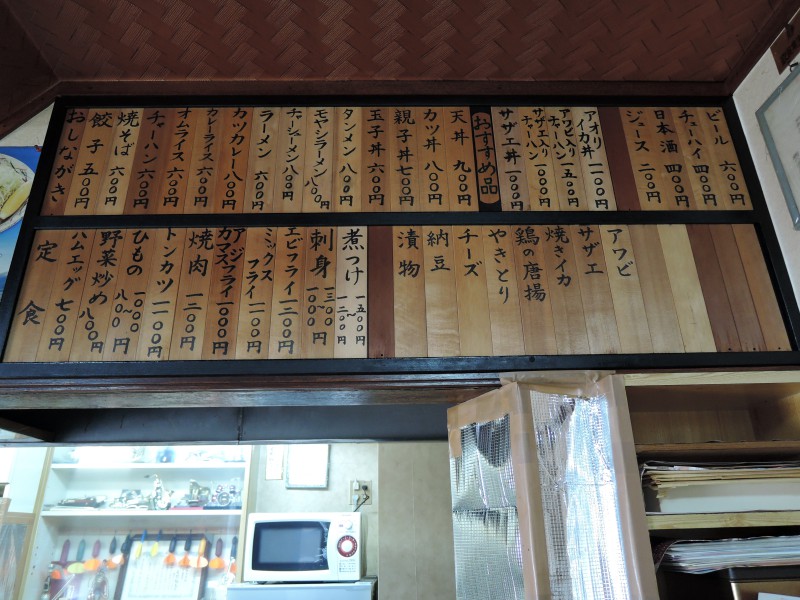 おしながき
餃子 五〇〇円
焼そば 六〇〇円
チャーハン 六〇〇円
オムライス 六〇〇円
カレーライス 六〇〇円
カツカレー 八〇〇円
ラーメン 六〇〇円
チャーシューメン 八〇〇円
モヤシラーメン 八〇〇円
タンメン 八〇〇円
玉子丼 六〇〇円
親子丼 七〇〇円
カツ丼 八〇〇円
天丼 九〇〇円
おすすめ品
サザエ丼 一〇〇〇円
サザエ入り
チャーハン 一〇〇〇円
アワビ入り
チャーハン 一五〇〇円
アオリ
イカ丼
ジュース 二〇〇円
日本酒 四〇〇円
チューハイ 四〇〇円
ビール 六〇〇円
定食
ハムエッグ 七〇〇円
野菜炒め 八〇〇円
ひもの 八〇〇〜一〇〇〇円
トンカツ 一一〇〇円
焼肉 一二〇〇円
アジ
カマスフライ 一〇〇〇円
ミックス
フライ 一一〇〇円
エビフライ 一三〇〇円
刺身 一〇〇〇〜一三〇〇円
煮つけ 一二〇〇〜一五〇〇円
漬物
納豆
チーズ
やきとり
鶏の唐揚
焼きイカ
サザエ
アワビ